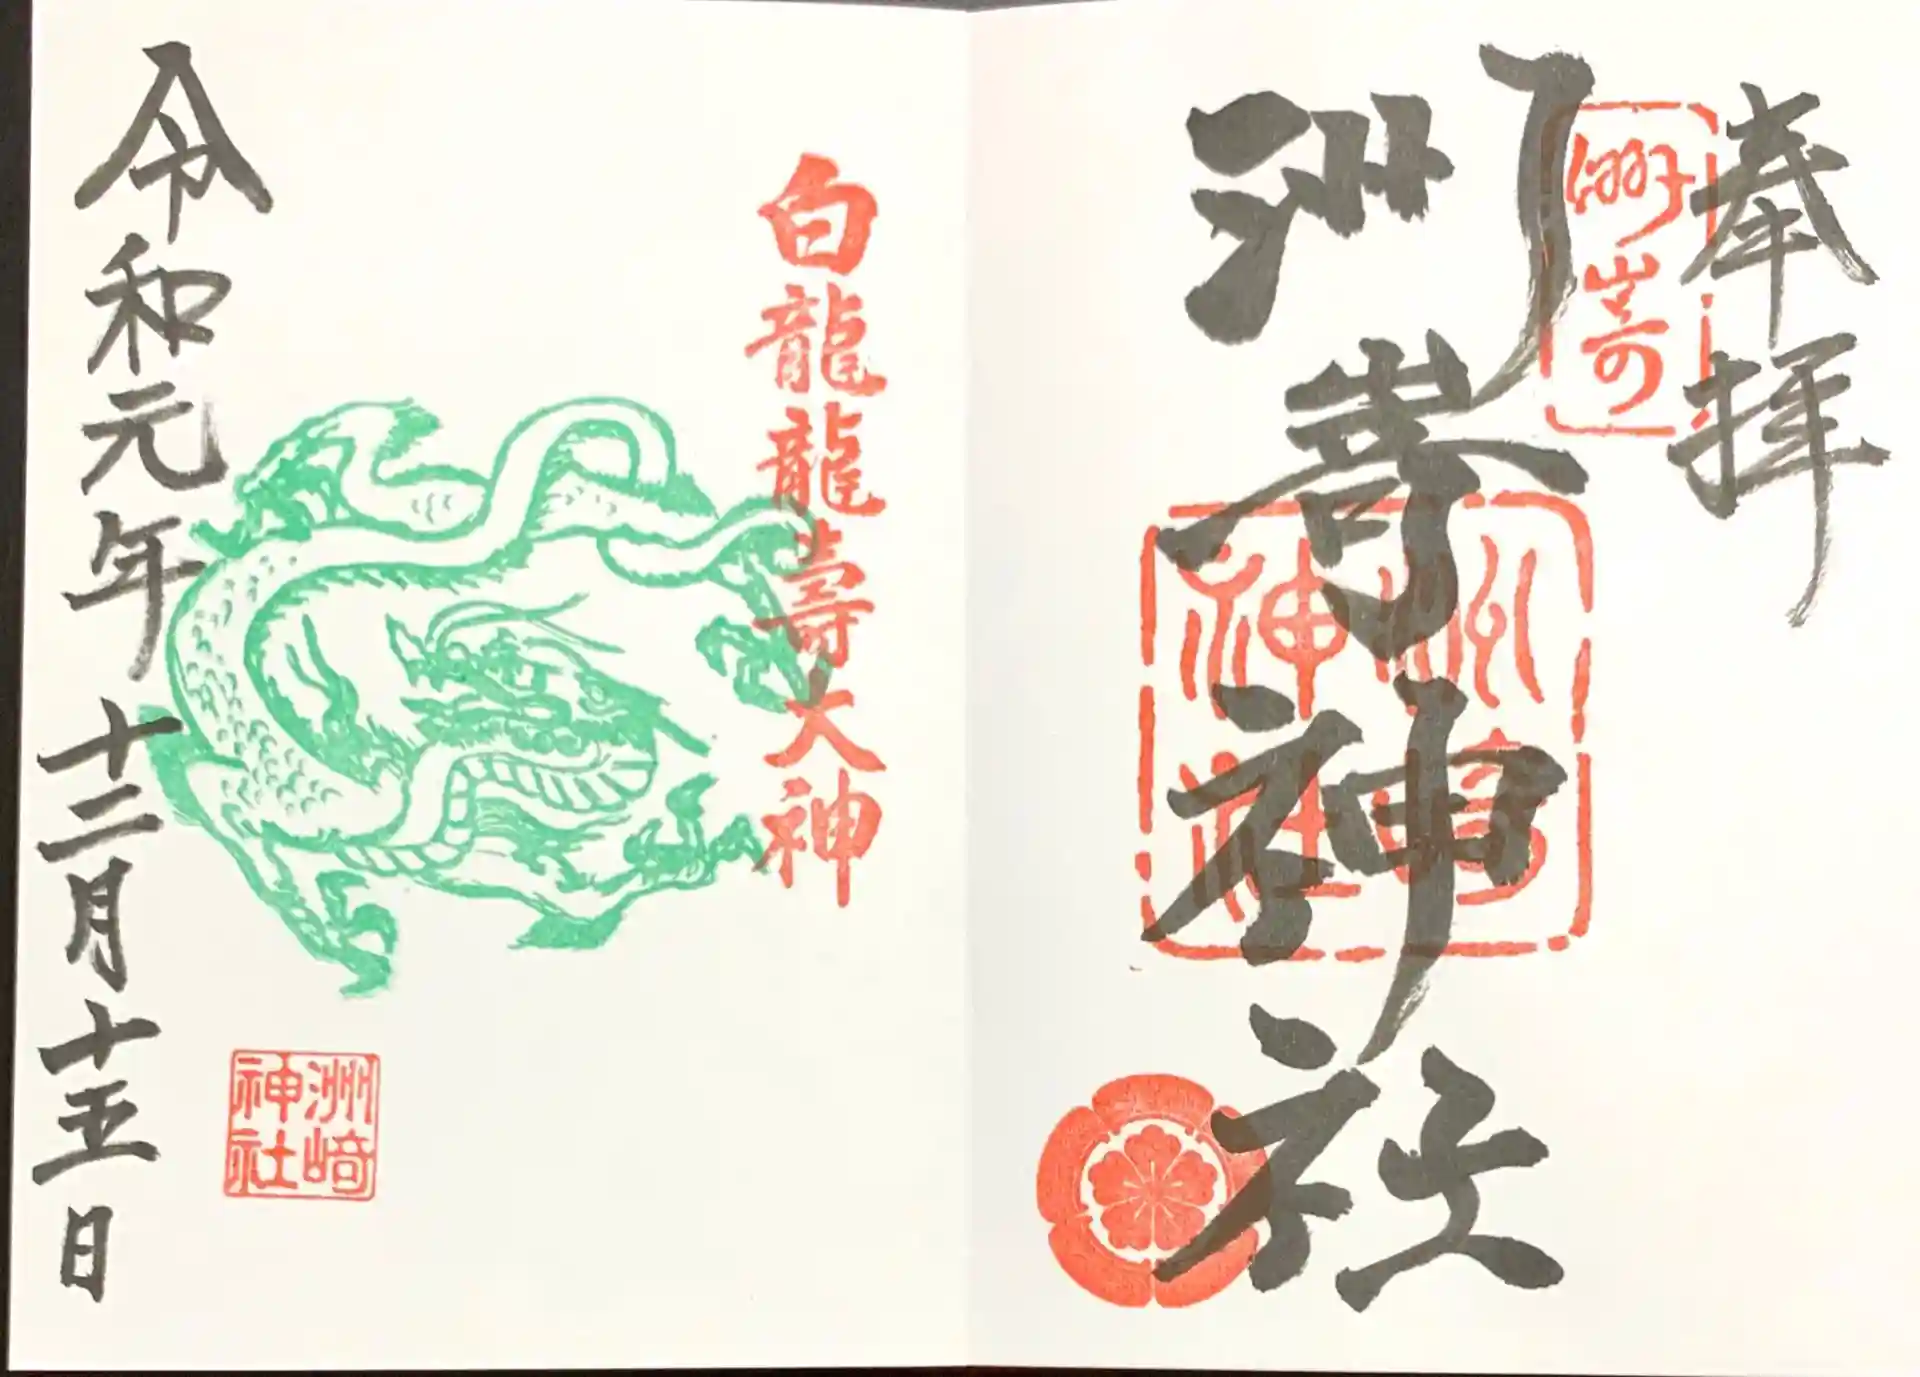 奉拝
洲嵜
洲嵜神社
洲嵜神社
白龍龍壽大神
令和元年十二月十五日
洲崎神社